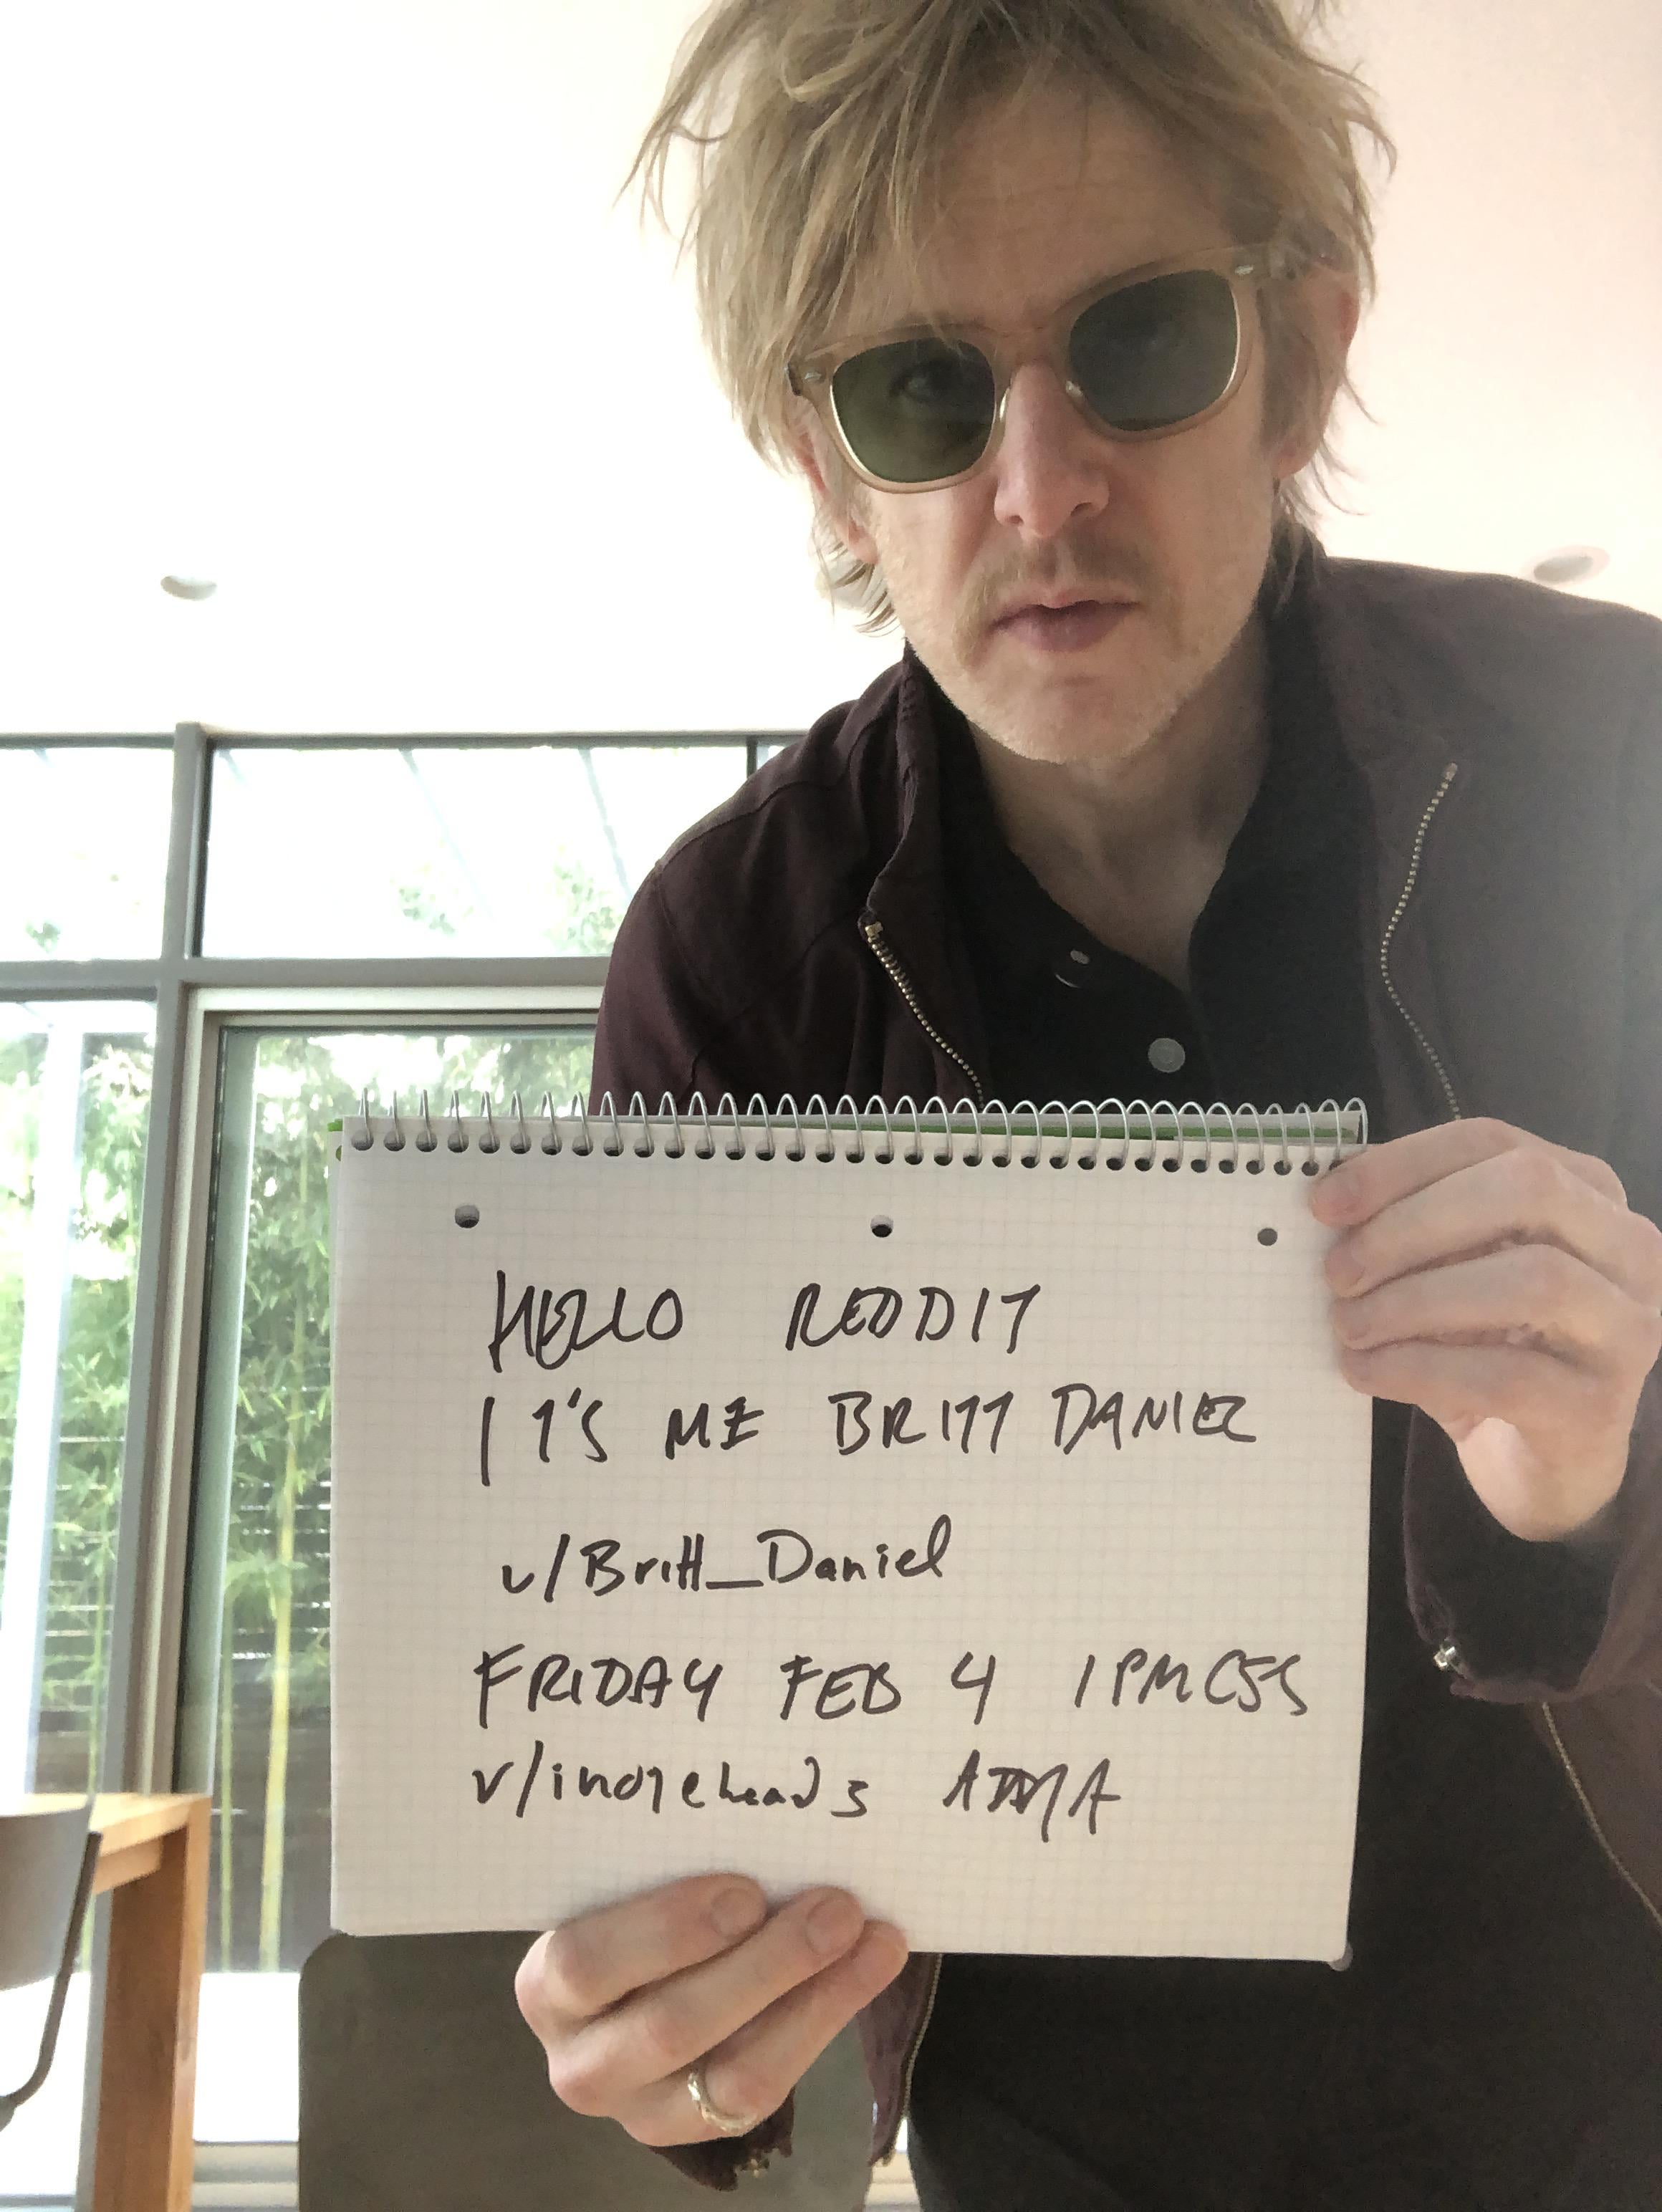 HELLO REDDIT
IT'S ME BRITT DANIEL
u/Britt_Daniel
FRIDAY FEB 4 1PM
r/indieheads AMA